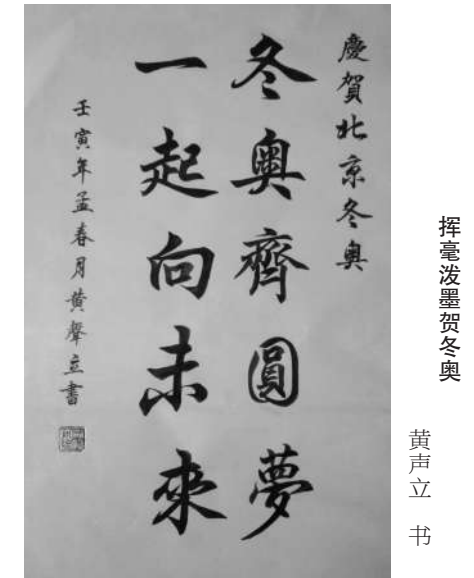 慶賀北京冬奥
冬奥齊圓夢
一起向未來
壬寅年孟春月黄聲立書
挥毫泼墨贺冬奥
黄声立 书